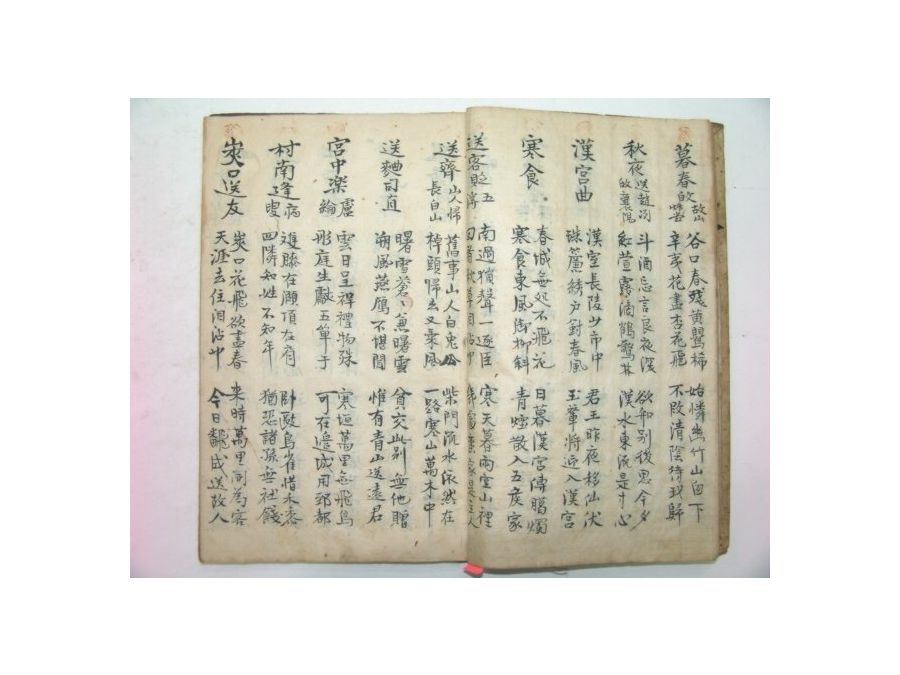 暮春故山敀草堂
谷口春殘黃鸎稀
辛夷花盡杏花飛
始憐幽竹山窗下
不改清陰待我歸
秋夜送趙冽敀襄陽
斗酒忘言良夜深
紅萱露滴鵲驚林
欲知別後思今夕
漢水東流是寸心
漢宮曲
漢室長陵少市中
珠簾綉戶對春風
君王昨夜移仙伏
玉輦將迎入漢宮
寒食
春城無處不飛花
寒食東風御柳斜
日暮漢宮傳臘燭
青烟散入五侯家
送客貶五
南過猿聲一逐臣
寒天暮雨空山裡
送齊山人歸長白山
舊事山人白兔公
掉頭歸去又乘風
柴門流水依然在
一路寒山萬木中
送麯司直
曙雪蒼〻兼曙雲
朔風燕鴈不堪聞
貧交此別無他贈
惟有青山送遠君
宮中樂盧綸
雲日呈祥禮物殊
彤庭生獻五單于
寒垣萬里無飛鳥
可在邊城用郅都
村南逢病叟
雙膝在頤頂在肩
四隣知姓不知年
臥敺鳥雀惜禾黍
猶恐諸孫無社錢
峽口送友
峽口花飛欲盡春
天涯去住泪沾巾
來時萬里同為客
今日翻成送故人